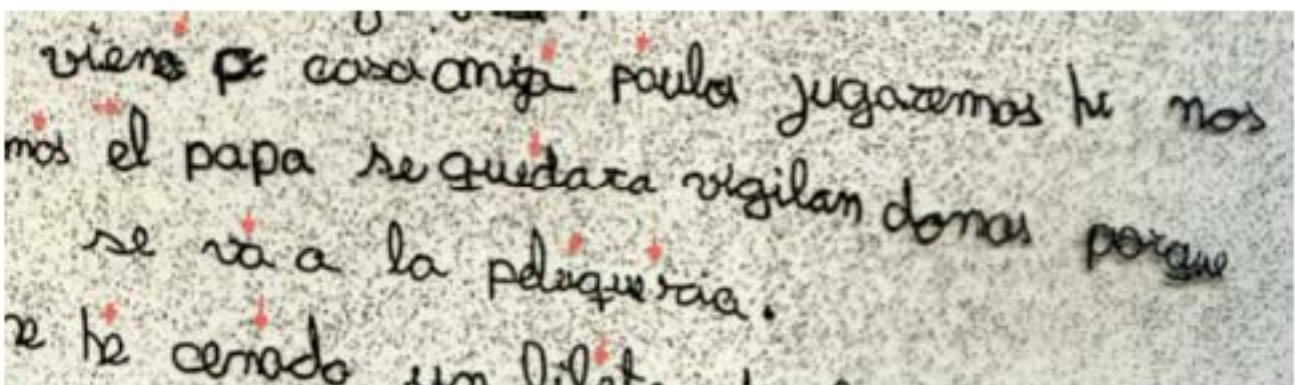 viene a casa amiga paula jugaremos hi nos
mos el papa se quedara vigilan donos porque
se va a la peluqueria.
e he cenado un